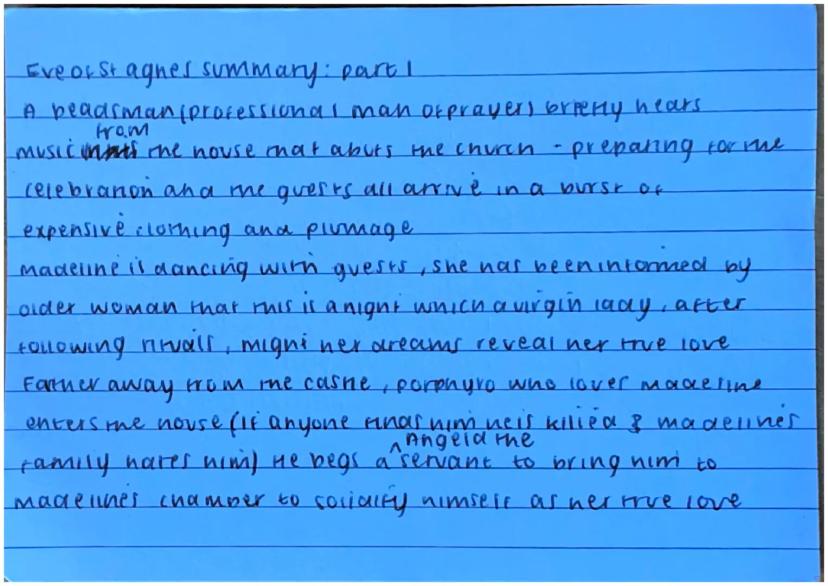 Eve of St agnes summary: part 1
A beadsman (professional man of prayer) briefly hears
music from the house that abuts the church - preparing for the
celebration and the guests all arrive in a burst of
expensive clothing and plumage
madeline is dancing with guests, she has been informed by
older woman that this is a night which a virgin lady, after
following rituals, might her dreams reveal her true love
Farther away from the castle, porphyro who loves madeline
enters the house (if anyone finds him he is killed & madeline's
family hates him) He begs a ^ Angela the servant to bring him to
madelines chamber to solidify himself as her true love